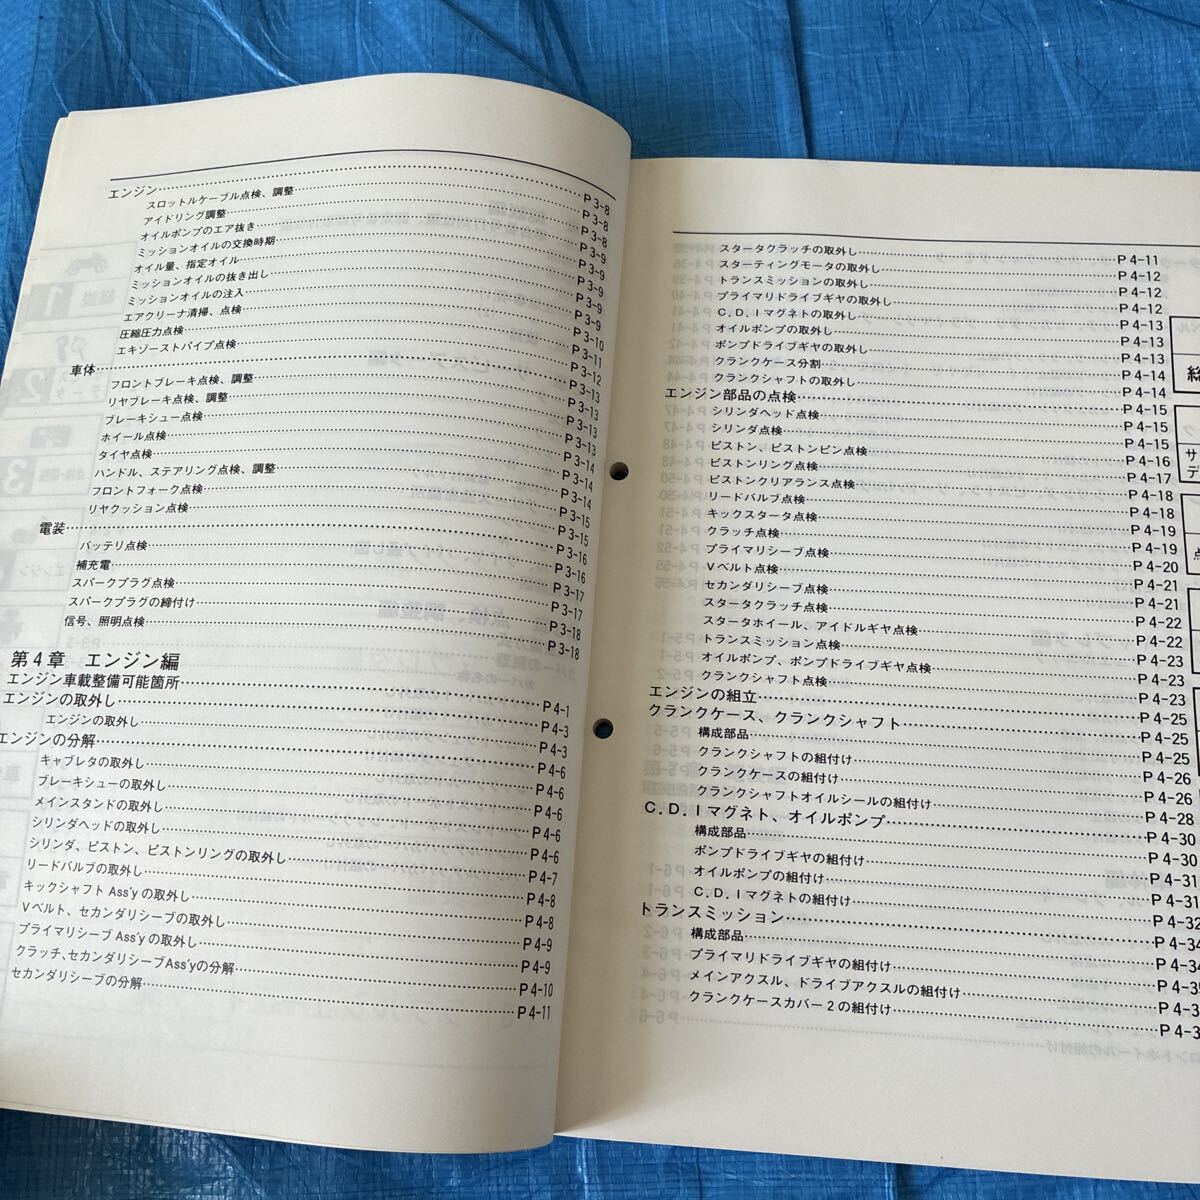 エンジン P3-8
スロットルケーブル点検、調整 P3-8
アイドリング調整 P3-8
オイルポンプのエア抜き P3-9
ミッションオイルの交換時期 P3-9
オイル量、指定オイル P3-9
ミッションオイルの抜き出し P3-9
ミッションオイルの注入 P3-9
エアクリーナ清掃、点検 P3-10
圧縮圧力点検 P3-11
エキゾーストパイプ点検 P3-12
車体 P3-13
フロントブレーキ点検、調整 P3-13
リヤブレーキ点検、調整 P3-13
ブレーキシュー点検 P3-13
ホイール点検 P3-14
タイヤ点検 P3-14
ハンドル、ステアリング点検、調整 P3-14
フロントフォーク点検 P3-15
リヤクッション点検 P3-15
電装 P3-16
バッテリ点検 P3-16
補充電 P3-17
スパークプラグ点検 P3-17
スパークプラグの締付け P3-18
信号、照明点検 P3-18
第4章 エンジン編
エンジン車載整備可能箇所 P4-1
エンジンの取外し P4-3
エンジンの取外し P4-3
エンジンの分解 P4-6
キャブレタの取外し P4-6
ブレーキシューの取外し P4-6
メインスタンドの取外し P4-6
シリンダヘッドの取外し P4-6
シリンダ、ピストン、ピストンリングの取外し P4-7
リードバルブの取外し P4-8
キックシャフト Ass'yの取外し P4-8
Vベルト、セカンダリシーブの取外し P4-9
プライマリシーブ Ass'yの取外し P4-9
クラッチ、セカンダリシーブAss'yの分解 P4-10
セカンダリシーブの分解 P4-11
スタータクラッチの取外し P4-11
スターティングモータの取外し P4-12
トランスミッションの取外し P4-12
プライマリドライブギヤの取外し P4-12
C.D.Iマグネトの取外し P4-13
オイルポンプの取外し P4-13
ポンプドライブギヤの取外し P4-13
クランクケース分割 P4-14
クランクシャフトの取外し P4-14
エンジン部品の点検 P4-15
シリンダヘッド点検 P4-15
シリンダ点検 P4-15
ピストン、ピストンピン点検 P4-16
ピストンリング点検 P4-17
ピストンクリアランス点検 P4-18
リードバルブ点検 P4-18
キックスタータ点検 P4-19
クラッチ点検 P4-19
プライマリシーブ点検 P4-20
Vベルト点検 P4-21
セカンダリシーブ点検 P4-21
スタータクラッチ点検 P4-22
スタータホイール、アイドルギヤ点検 P4-22
トランスミッション点検 P4-23
オイルポンプ、ポンプドライブギヤ点検 P4-23
クランクシャフト点検 P4-23
エンジンの組立 P4-25
クランクケース、クランクシャフト P4-25
構成部品 P4-25
クランクシャフトの組付け P4-26
クランクケースの組付け P4-26
クランクシャフトオイルシールの組付け P4-28
C.D.Iマグネト、オイルポンプ P4-30
構成部品 P4-30
ポンプドライブギヤの組付け P4-31
オイルポンプの組付け P4-31
C.D.Iマグネトの組付け P4-32
トランスミッション P4-34
構成部品 P4-34
プライマリドライブギヤの組付け P4-35
メインアクスル、ドライブアクスルの組付け P4-3
クランクケースカバー2の組付け P4-3